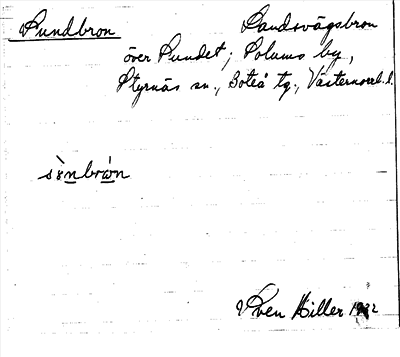 Sundbron Landsvägsbron
över Sundet; Solums by,
Styrnäs sn., Boteå tg., Västernorrl. l.
Sven Hiller 1932